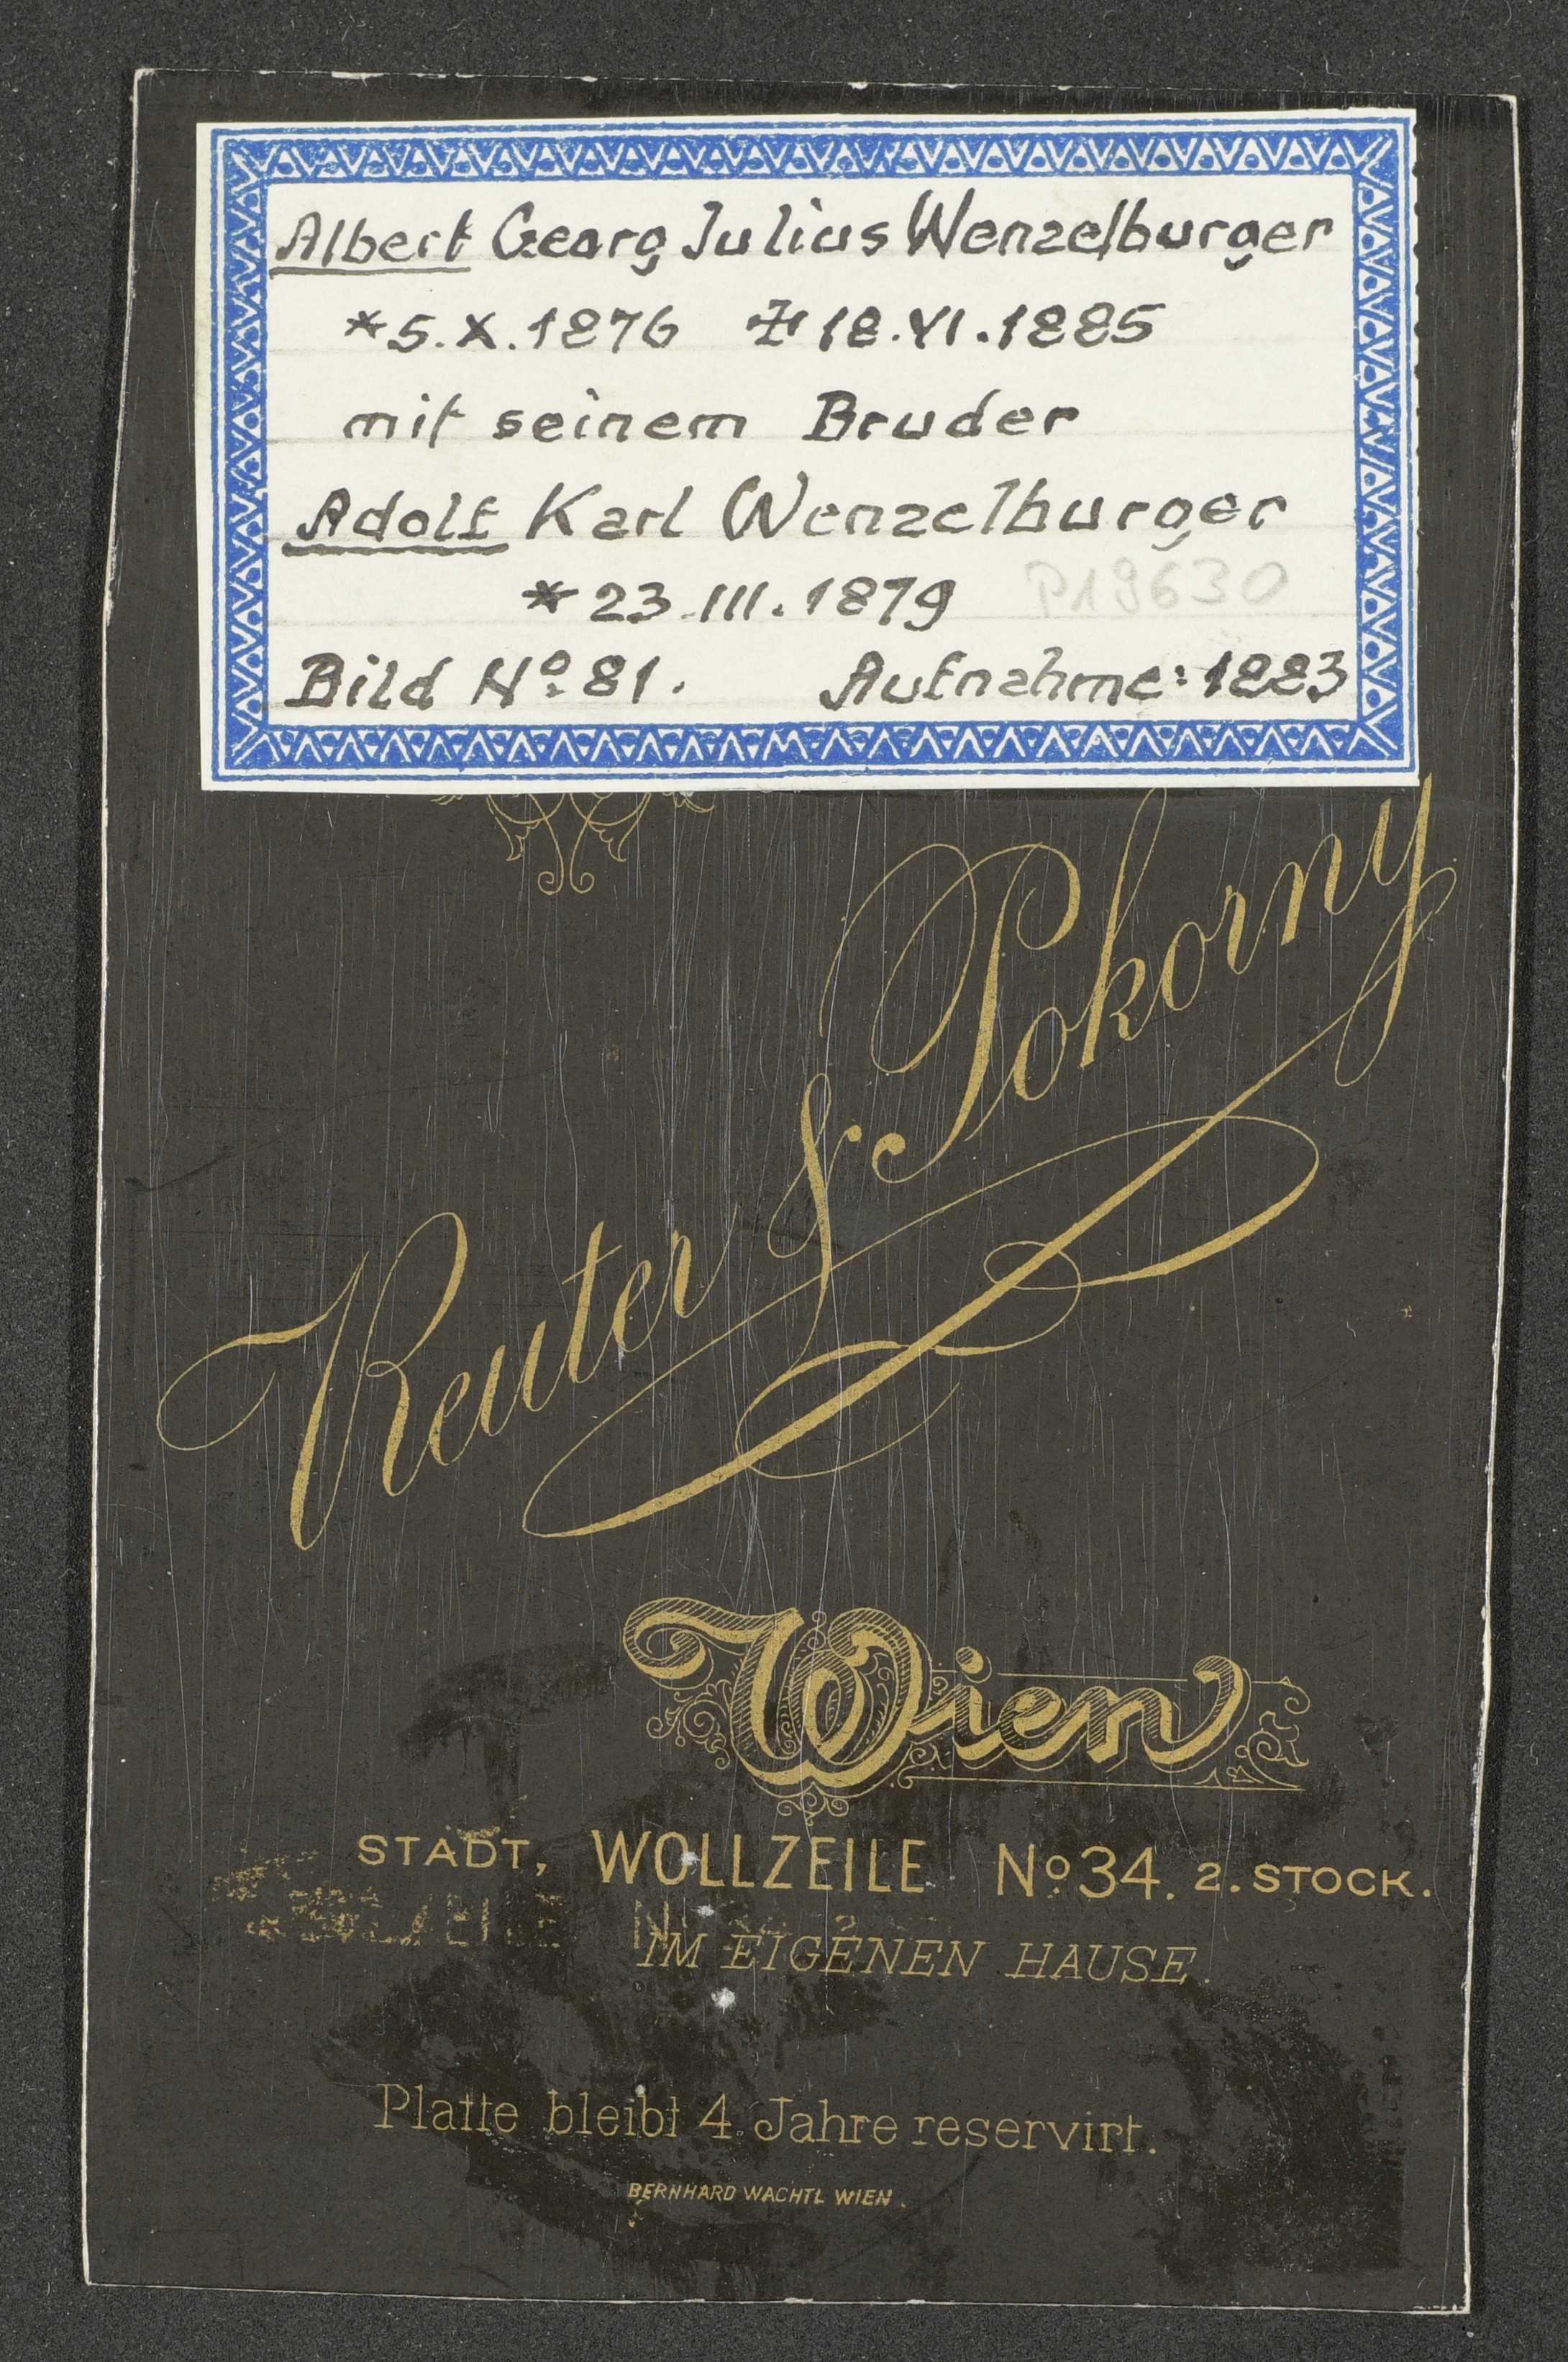 Albert Georg Julius Wenzelburger
*5.X.1876 ✝ 18.VI.1885
mit seinem Bruder
Adolf Karl Wenzelburger
*23.III.1879 P19630
Bild No. 81. Aufnahme: 1883
Reuter & Pokorny
Wien
STADT, WOLLZEILE No 34. 2. STOCK.
IM EIGENEN HAUSE.
Platte bleibt 4 Jahre reservirt.
BERNHARD WACHTL WIEN.